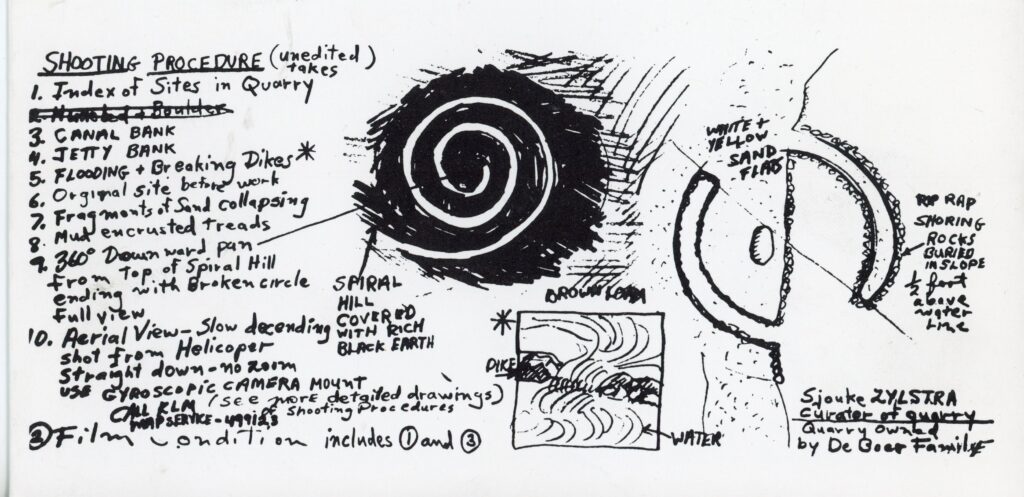 SHOOTING PROCEDURE (unedited)
takes
1. Index of Sites in Quarry
2. Numbed + Boulder
3. CANAL BANK
4. JETTY BANK
5. FLOODING + Breaking Dikes *
6. Orginal site before work
7. Fragments of Sand collapsing
8. Mud encrusted treads
9. 360° Downward pan
from top of Spiral Hill
ending with Broken circle
full view
10. Aerial View - Slow decending
shot from Helicoper
straight down - no zoom
USE GYROSCOPIC CAMERA MOUNT
(see more detailed drawings)
of shooting Procedures
CALL KLM
MAP SERVICE -
② Film Condition includes ① and ③
SPIRAL
HILL
COVERED
WITH RICH
BLACK EARTH
BROWN LOAM
*
DIKE
WATER
WHITE +
YELLOW
SAND
FLATS
RIP RAP
SHORING
ROCKS
BURIED
IN SLOPE
½ foot
above
water
Line
Sjouke ZYLSTRA
curator of quarry
Quarry owned
by De Boer Family